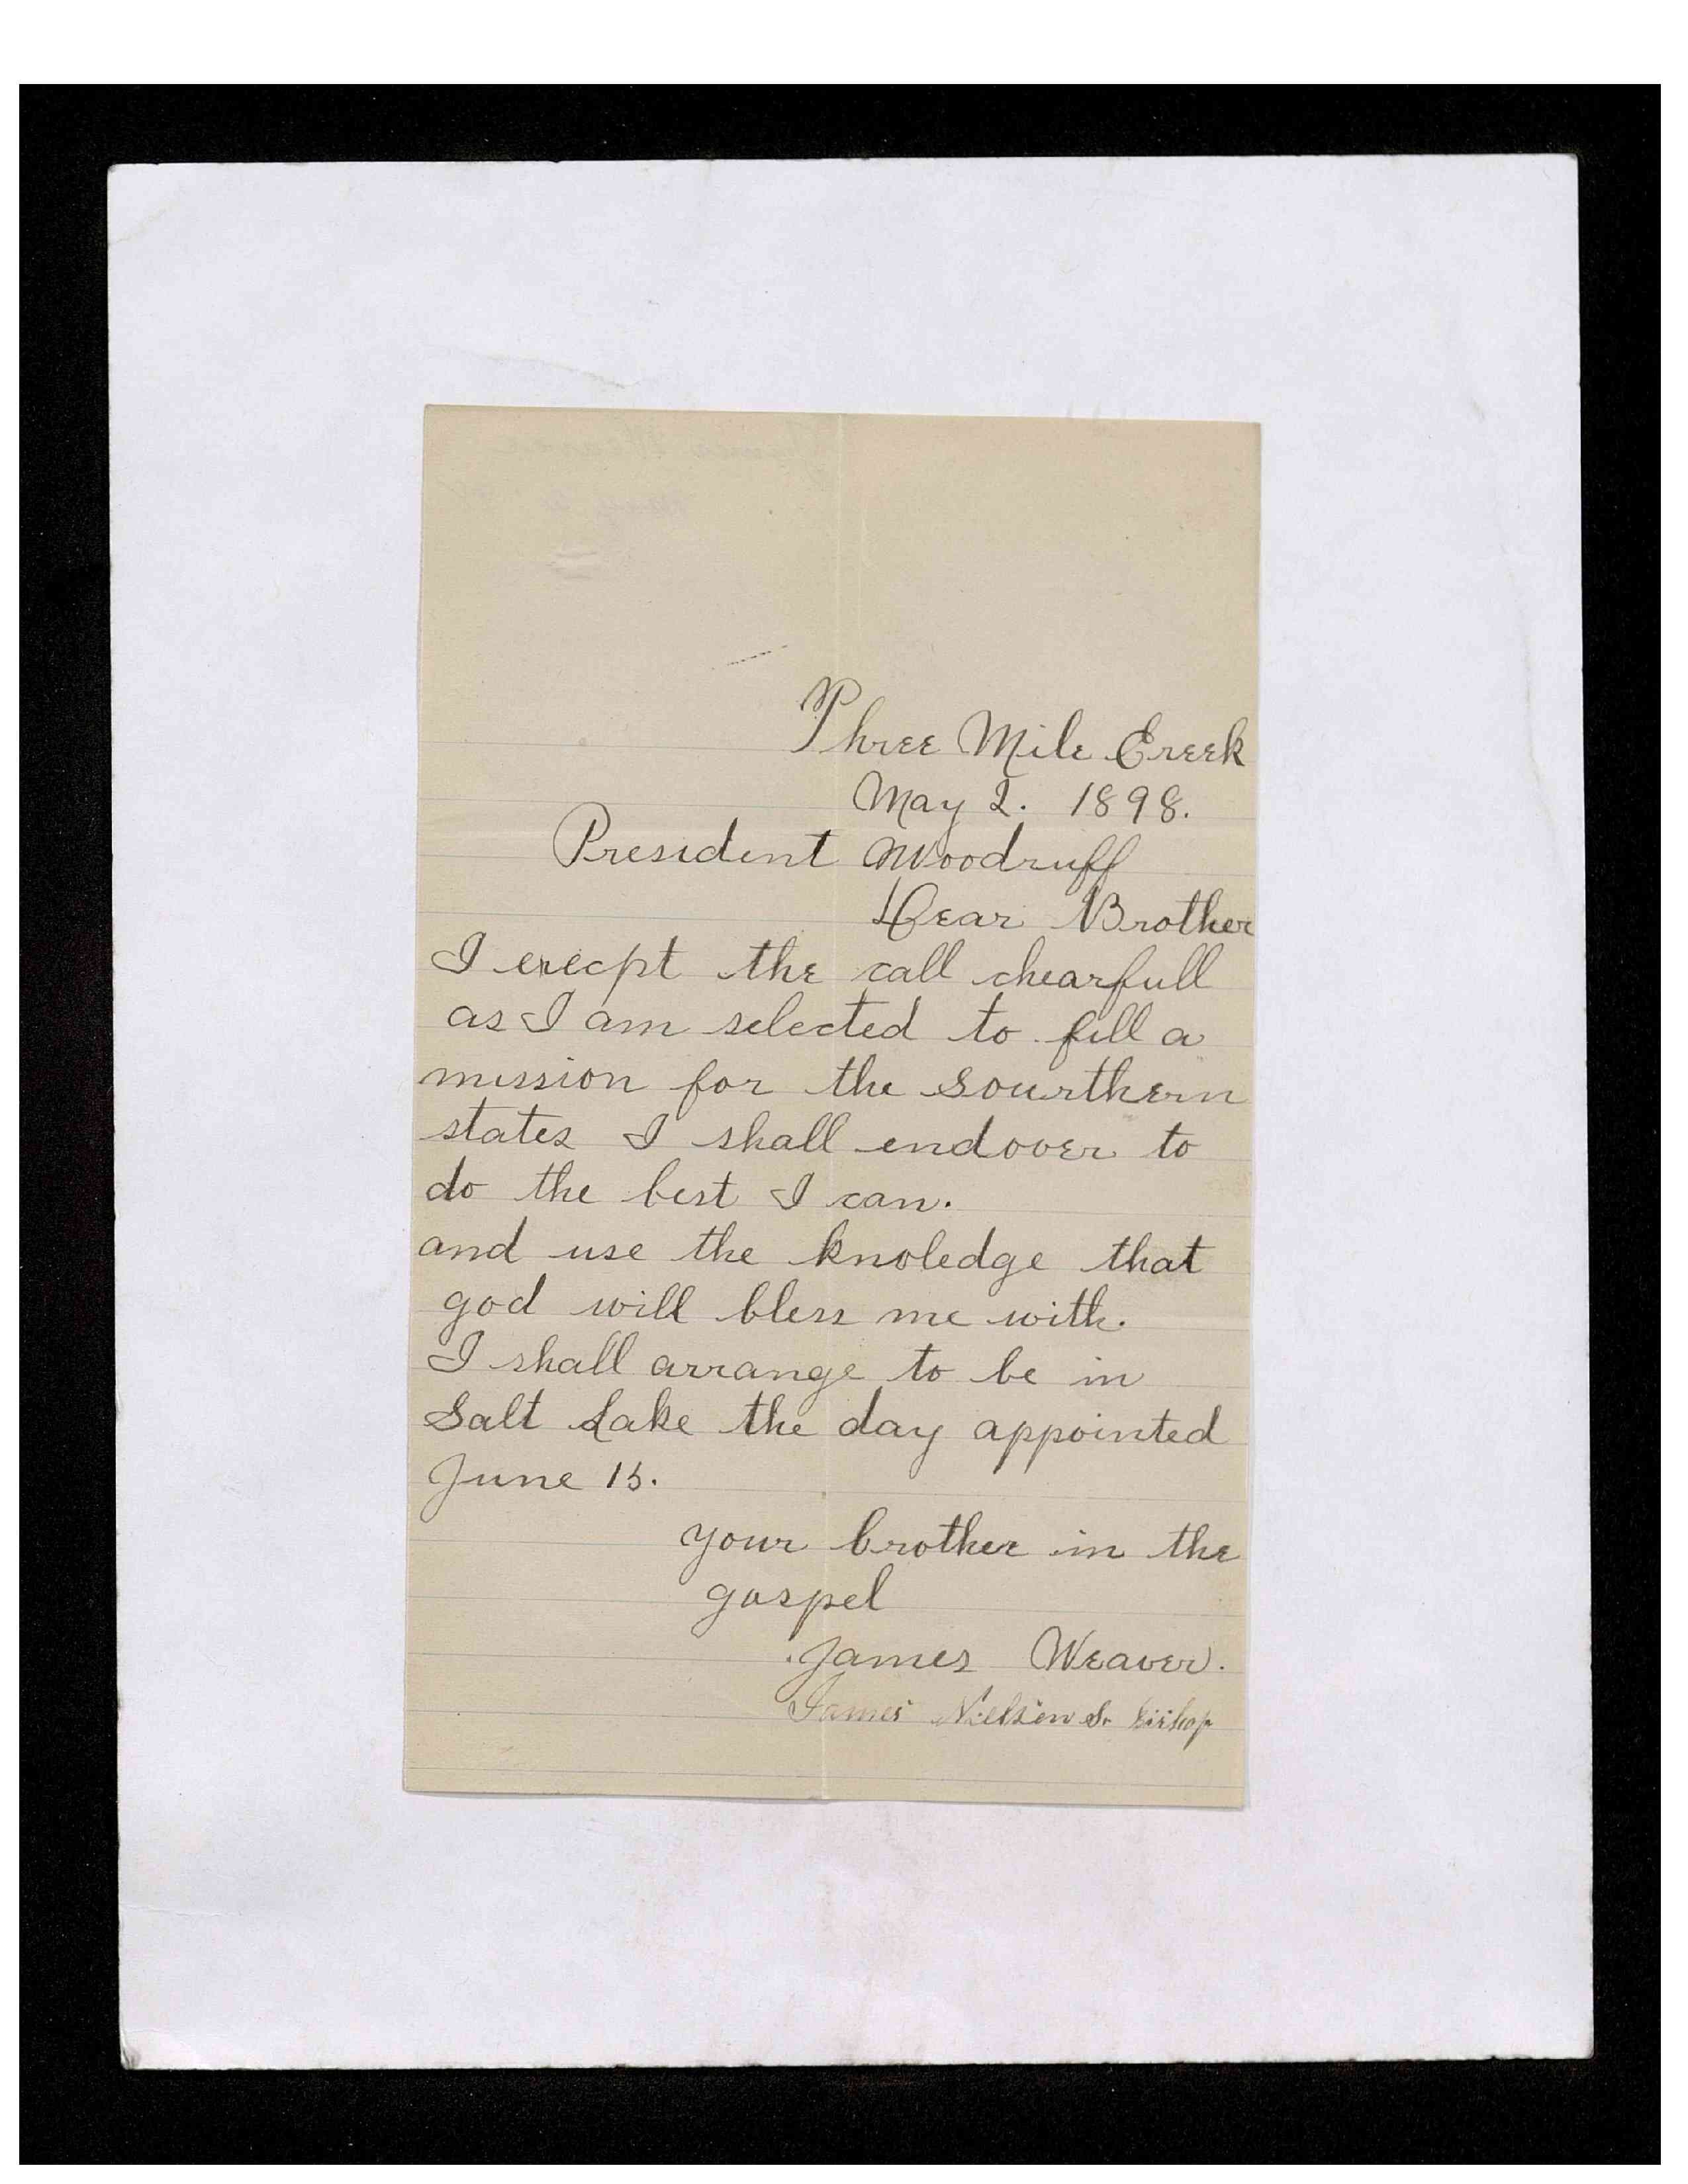 Three Mile Creek
May 2. 1898.
President Woodruff
Dear Brother
I execpt the call chearfull
as I am selected to fill a
mission for the sourthern
states I shall endover to
do the best I can.
and use the knoledge that
god will bless me with.
I shall arrange to be in
Salt Lake the day appointed
June 15.
your brother in the
gospel
James Weaver.
James Nielsen Sr bishop